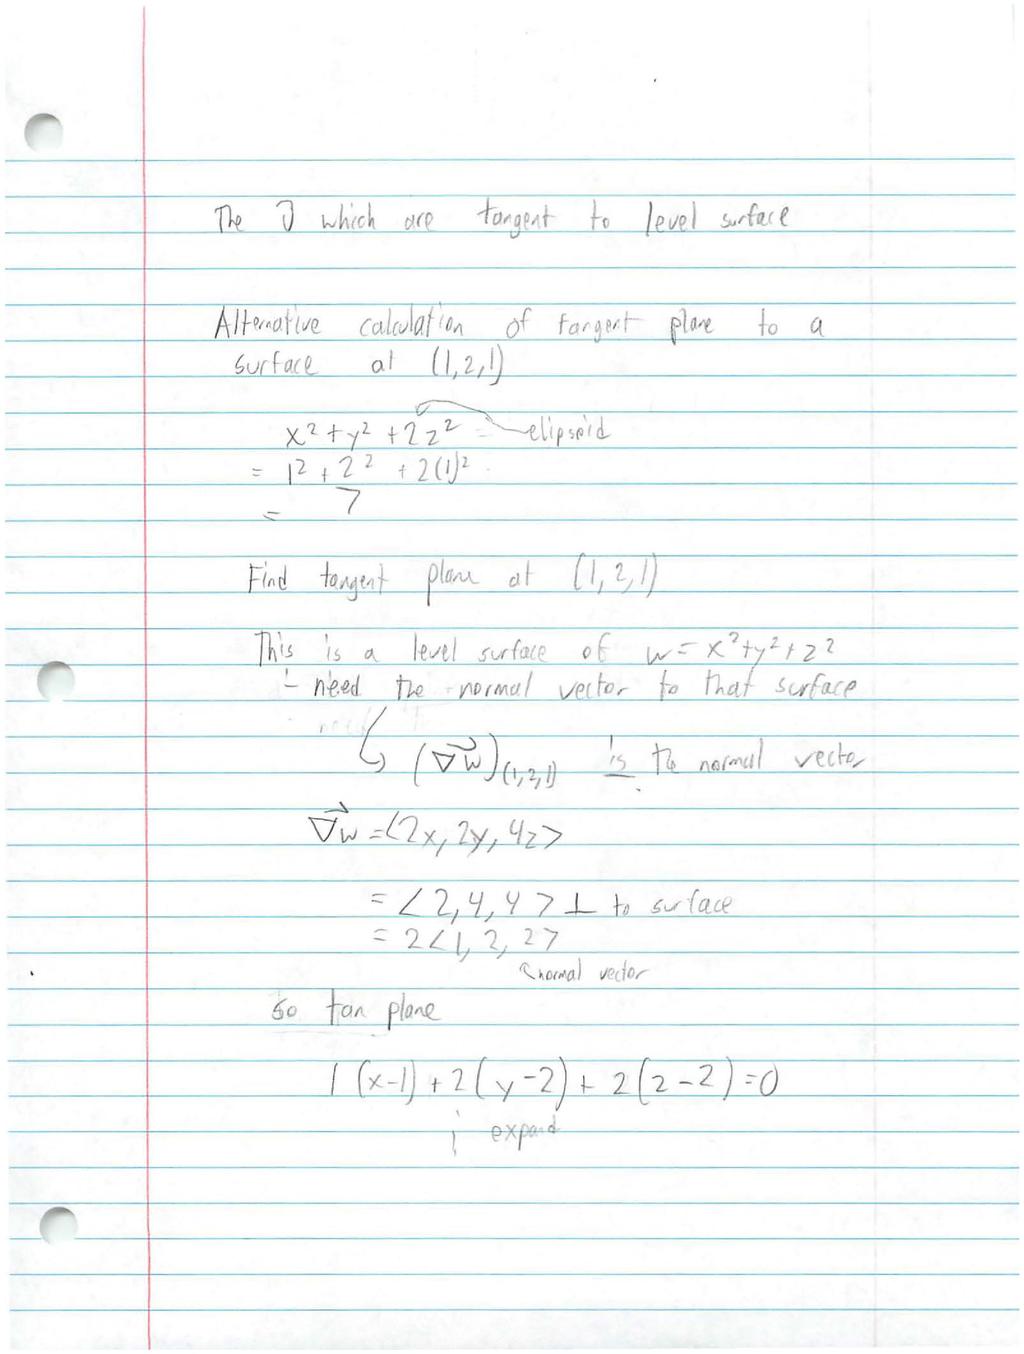 The which are tangent to level surface
Alternative calculation of tangent plane to a
surface at (1,2,1)
x² + y² + 2z² = elipsoid
= 1² + 2² + 2(1)²
= 7
Find tangent plane at (1, 2, 1)
This is a level surface of w = x² + y² + z²
- need the normal vector to that surface
(∇w)(1,2,1) is the normal vector
∇w = <2x, 2y, 4z>
= <2, 4, 4> ⊥ to surface
= 2<1, 2, 2>
normal vector
so tan plane
1(x-1) + 2(y-2) + 2(z-2) = 0
expand